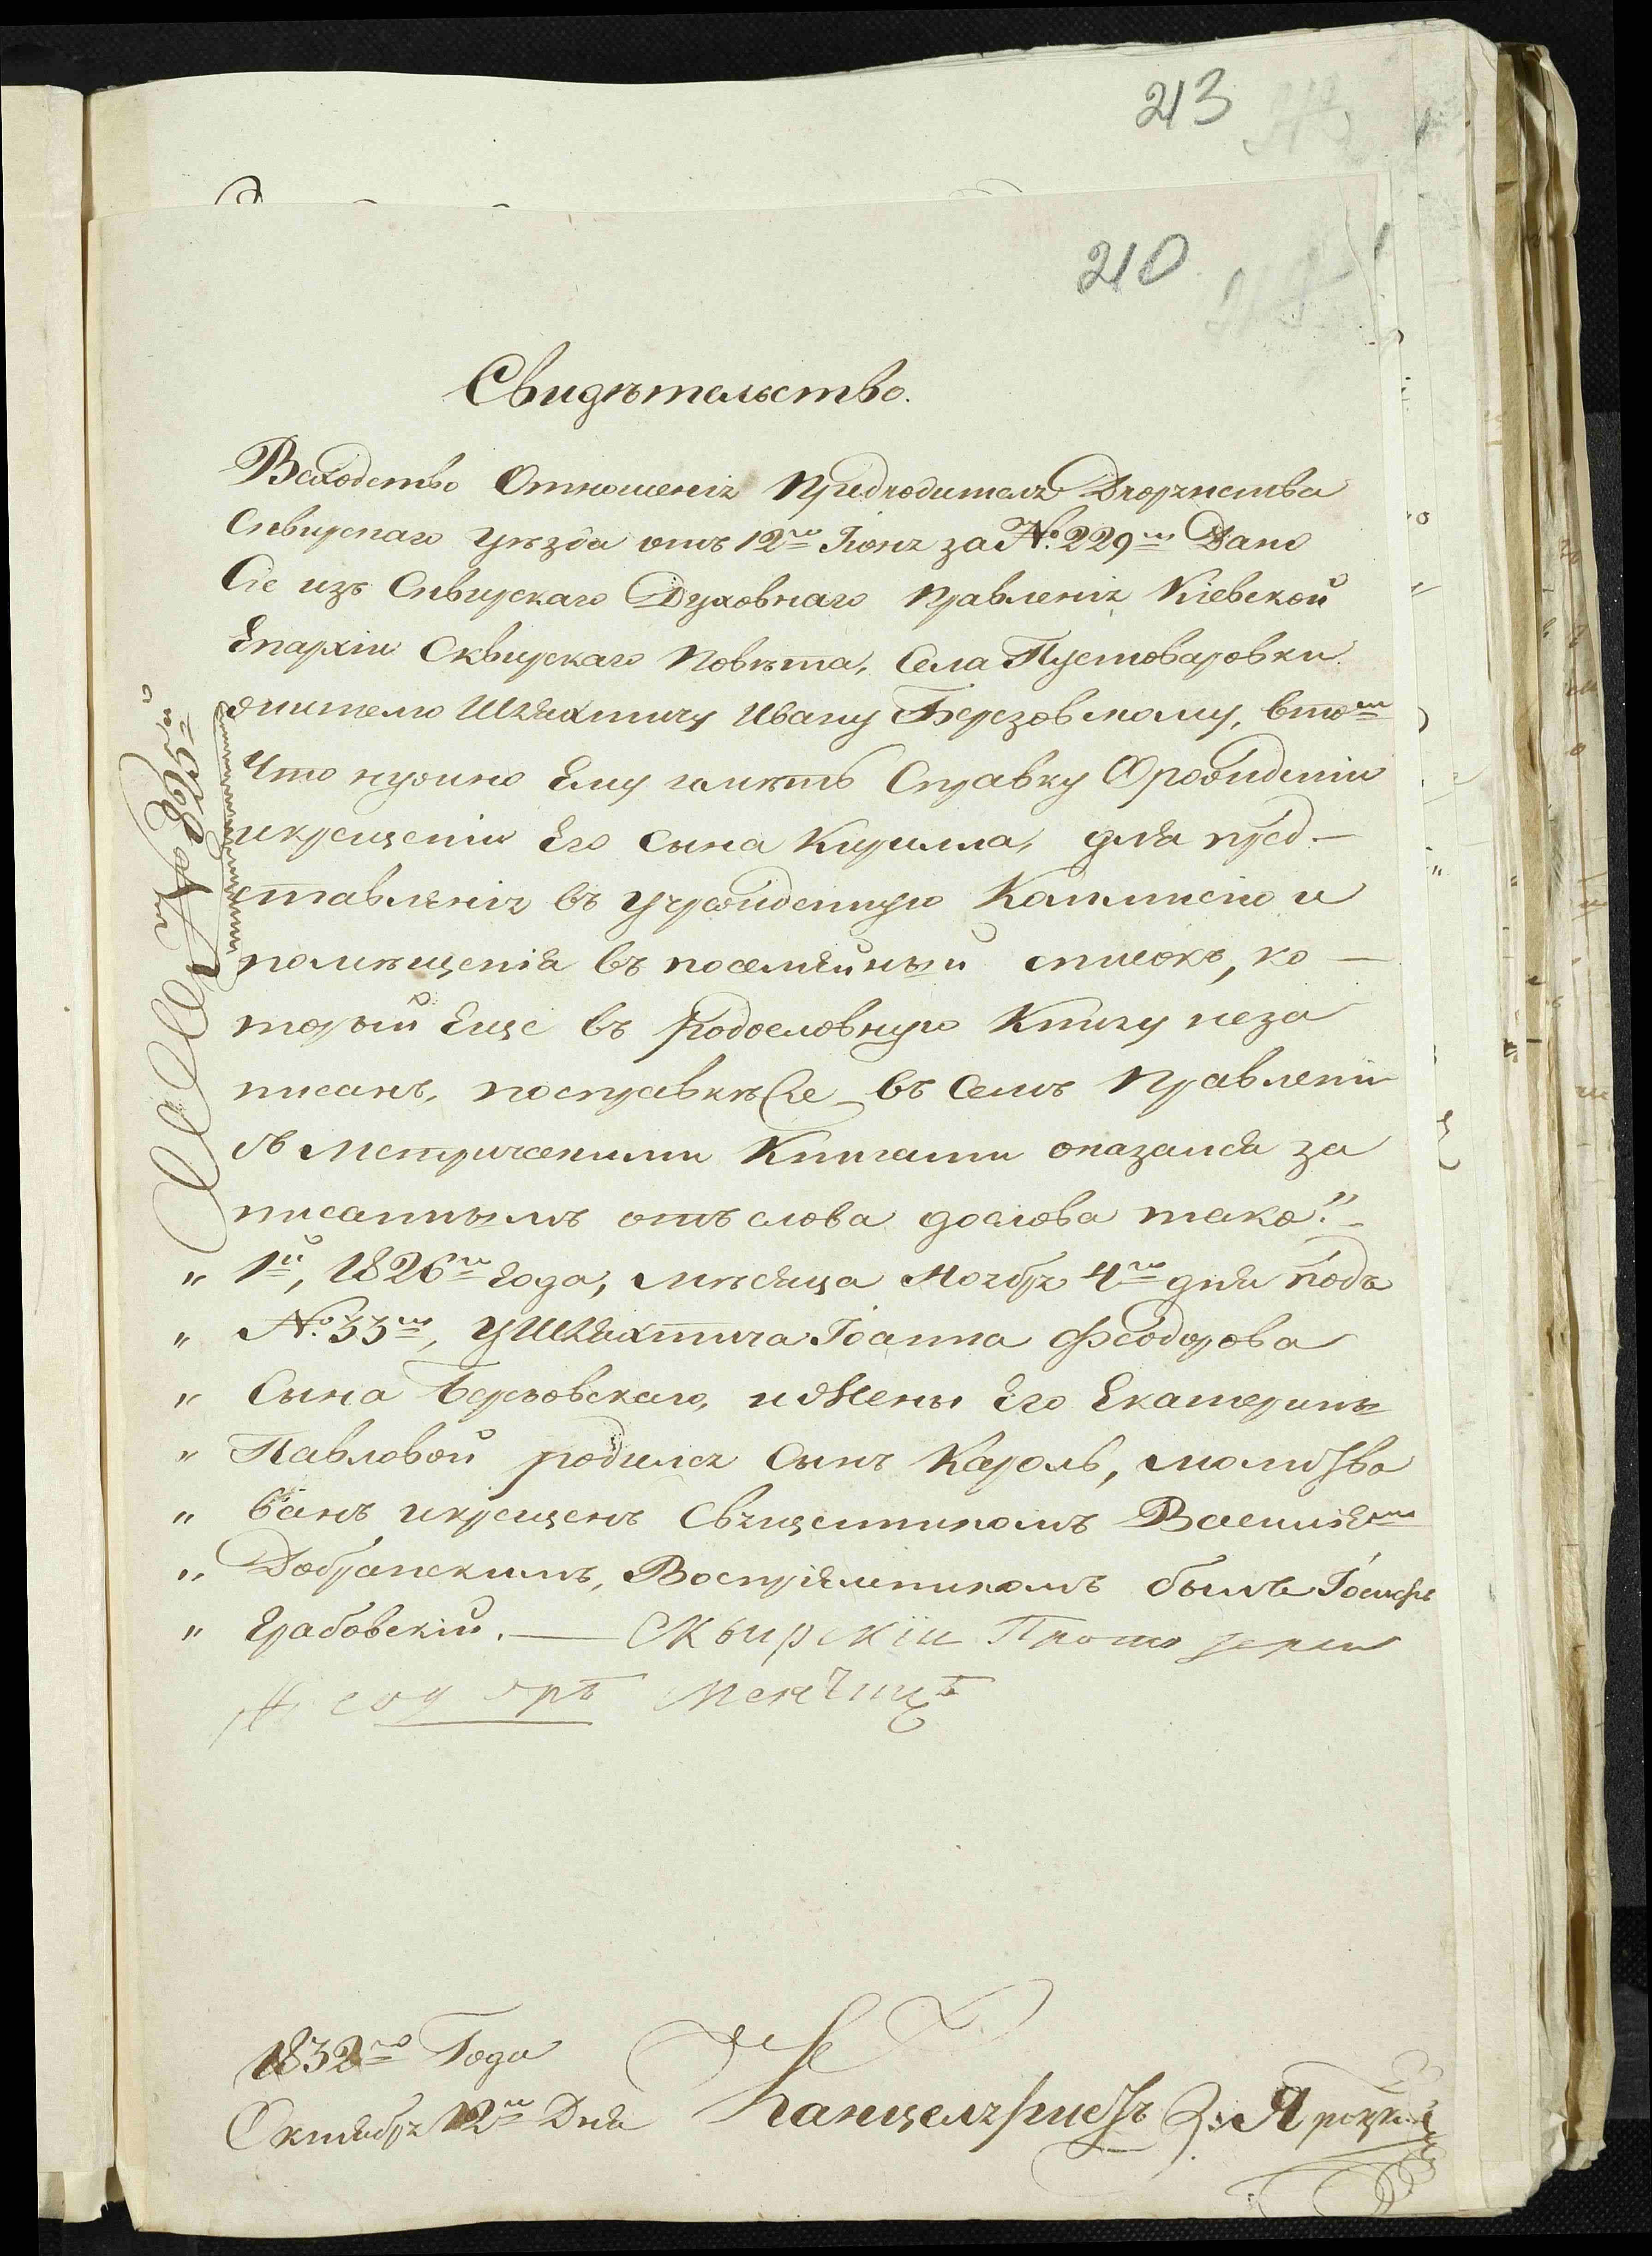 213
210
Свидѣтельство.
Всходство Отношенія Предводителя Дворянства
Сквирскаго уѣзда отъ 12го Іюня за №. 229м Дано
Сіе изъ Сквирскаго Духовнаго Правленія Кіевской
Епархіи Сквирскаго Повѣта, Села Пустоваровки
жителю Шляхтичу Ивану Березовскому, втом
Что нужно Ему имѣть Справку Орождении
икрещеніи Его сына Кирилла, для пред-
ставленія въ учрежденную Коммисію и
помѣщенія въ посемейный списокъ, ко-
торый Еще въ Родословную Книгу неза
писанъ, посправкѣ Же въ Семъ Правленіи
съ Метрическими Книгами оказался за
писаннымъ отъ слова дослова тако:"
" 1й, 1826го Года, мѣсяца Ноября 4го дня подъ
" №. 33м, У Шляхтича Іоанна Феодорова
" Сына Березовскаго, и Жены Его Екатерины
" Павловой родился Сынъ Кароль, молитво
" ванъ икрещенъ Священникомъ Василіем
" Добранскимъ, Воспріемникомъ былъ Іосифъ
" Грабовскій. — Сквирскіи Протоіереи
Менчицъ
№ 898
1832го Года
Октября 12го Дня
Канцеляристъ